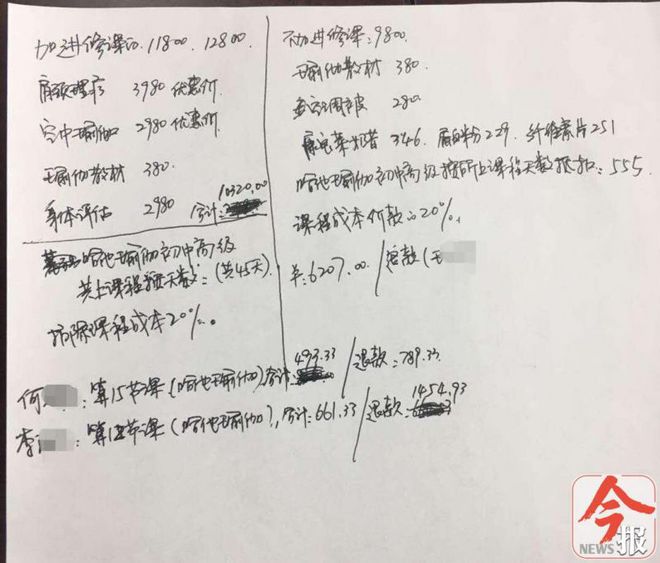 加进修课:11800. 12800.
肩颈理疗 3980 优惠价.
空中瑜伽 2980 优惠价.
瑜伽教材 380.
身体评估 2980 合计: 10320.00
哈他瑜伽初中高级
共上课程按天数:(共45天)
扣除课程成本20%.
不加进修课:9800.
瑜伽教材 380.
280.
346. 蛋白粉229. 纤维素片251
哈他瑜伽初中高级按所上课程天数抵扣: 555.
课程成本价款的20%.
共:6207.00 / 退款(王
何 : 算15节课(哈他瑜伽)合计: 493.33 / 退款: 789.33
李 : 算 节课(哈他瑜伽), 合计: 661.33 / 退款: 1454.93
今报
NEWS